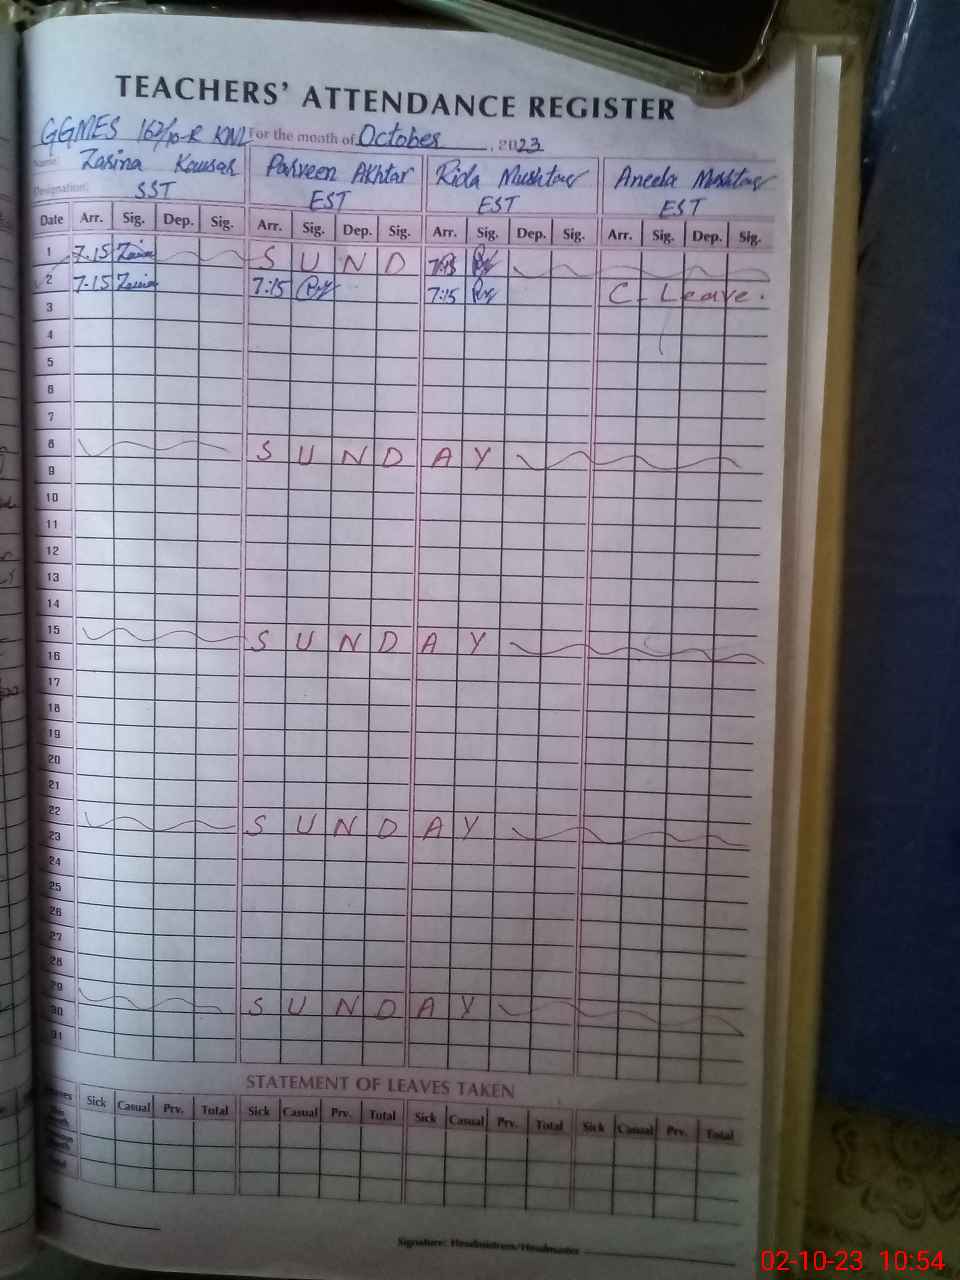 TEACHERS' ATTENDANCE REGISTER
GGMES 162/10-R KWL For the month of October, 2023
Name: Zarina Kousar Parveen Akhtar Rida Mushtaq Aneela Mushtaq
Designation: SST EST EST EST
Date Arr. Sig. Dep. Sig. Arr. Sig. Dep. Sig. Arr. Sig. Dep. Sig. Arr. Sig. Dep. Sig.
1 7.15 S U N D 7:15
2 7.15 7:15 7:15 C. Leave.
3
4
5
6
7
8 S U N D A Y
9
10
11
12
13
14
15 S U N D A Y
16
17
18
19
20
21
22 S U N D A Y
23
24
25
26
27
28
29 S U N D A Y
30
31
STATEMENT OF LEAVES TAKEN
Sick Casual Prv. Total Sick Casual Prv. Total Sick Casual Prv. Total Sick Casual Prv. Total
Signature: Headmistress/Headmaster
02-10-23 10:54